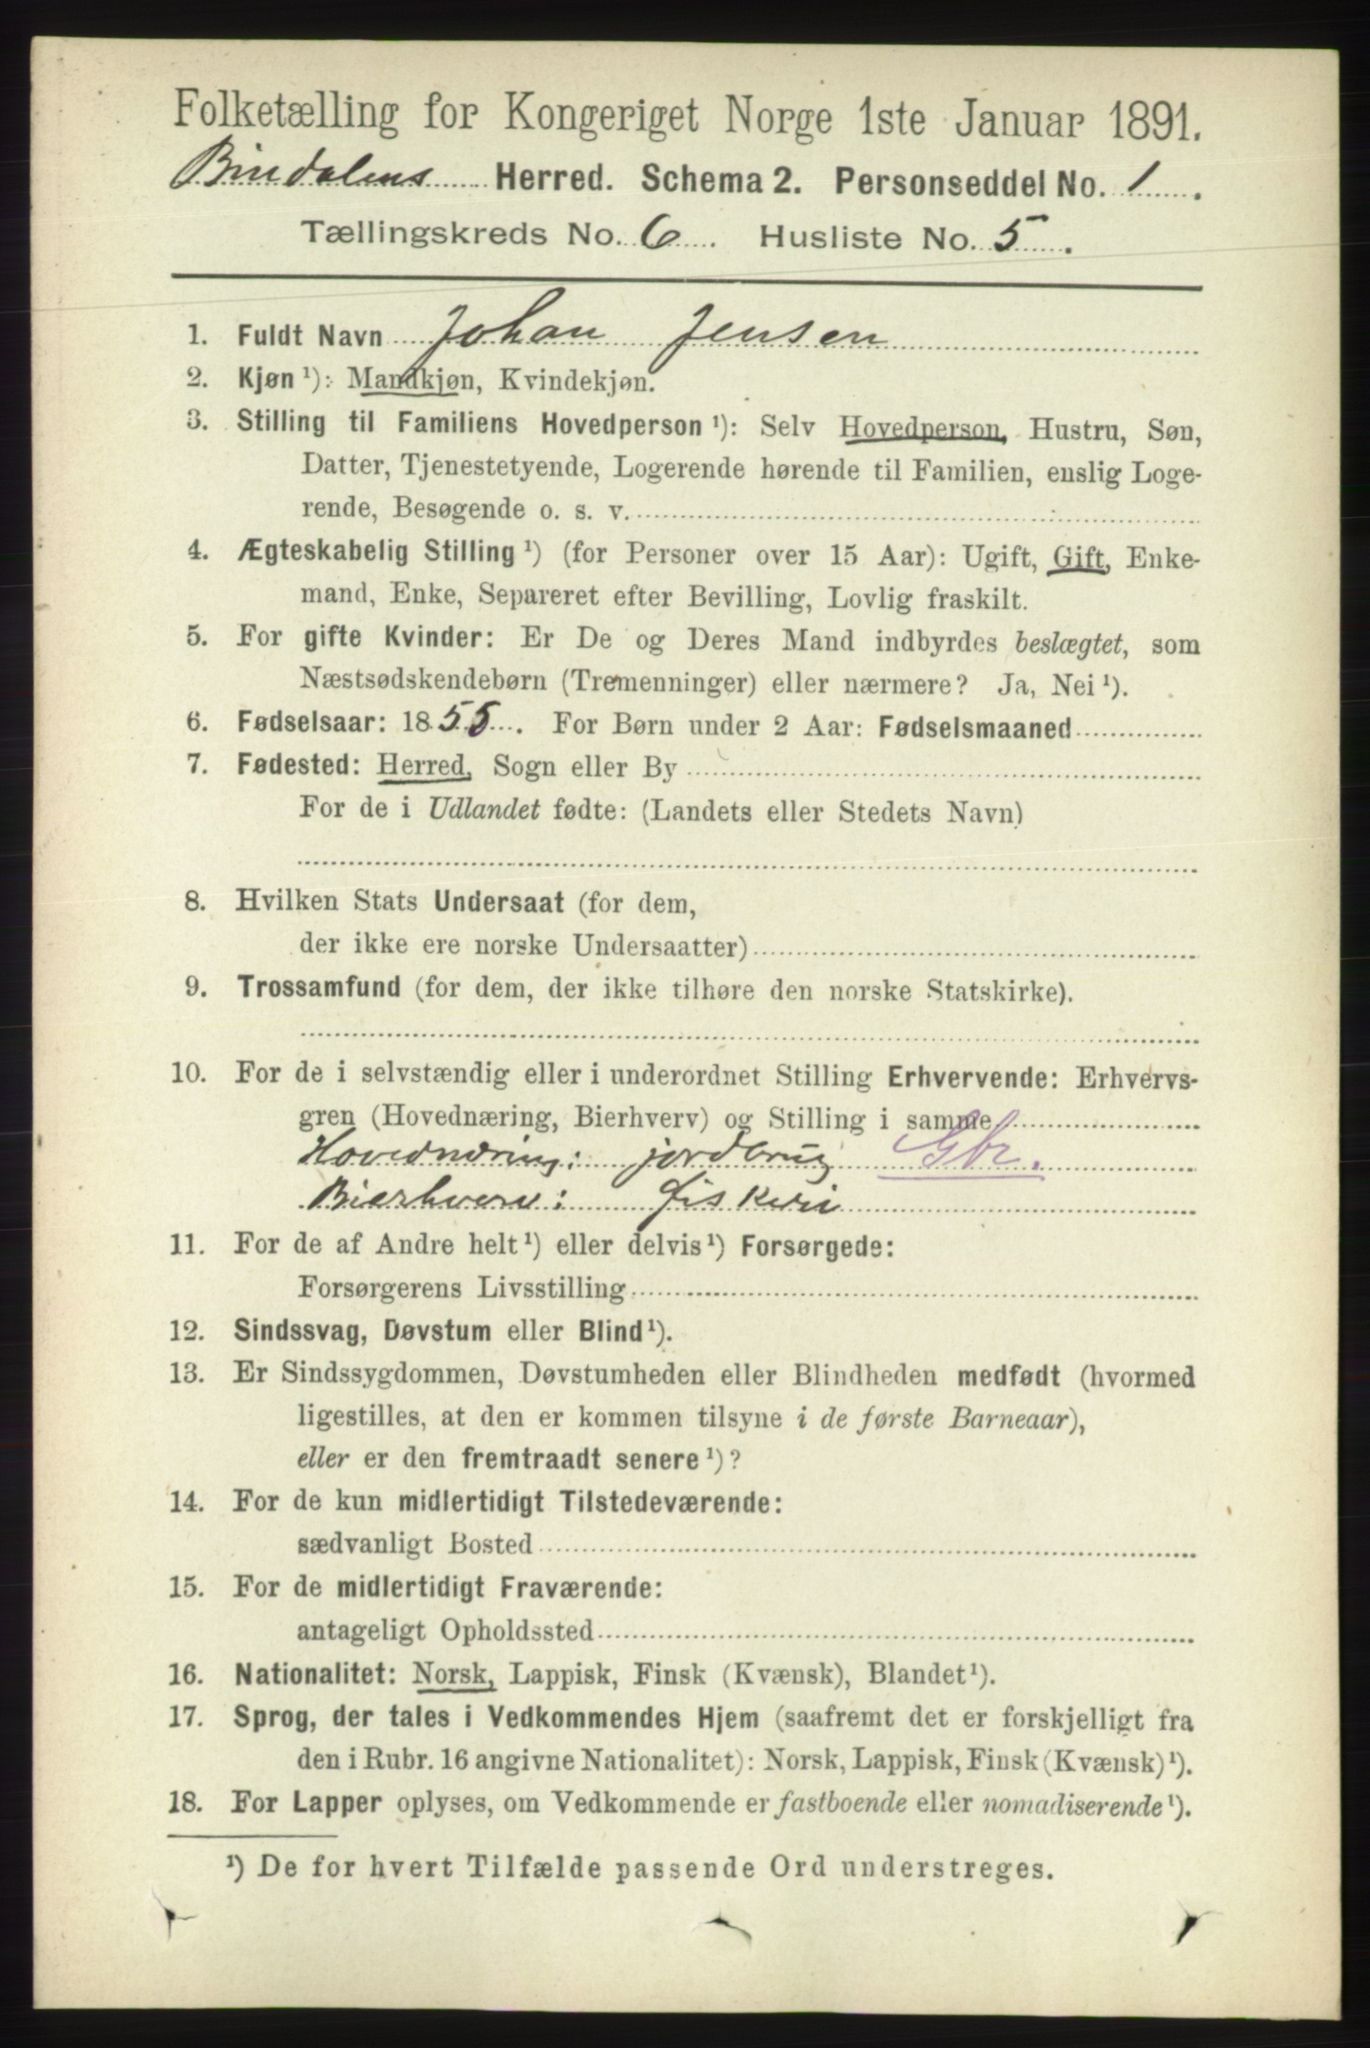 Folketælling for Kongeriget Norge 1ste Januar 1891.
Bindalens Herred. Schema 2. Personseddel No. 1.
Tællingskreds No. 6. Husliste No. 5.
1. Fuldt Navn Johan Jensen
2. Kjøn ¹): Mandkjøn, Kvindekjøn.
3. Stilling til Familiens Hovedperson ¹): Selv Hovedperson, Hustru, Søn,
Datter, Tjenestetyende, Logerende hørende til Familien, enslig Loge-
rende, Besøgende o. s. v.
4. Ægteskabelig Stilling ¹) (for Personer over 15 Aar): Ugift, Gift, Enke-
mand, Enke, Separeret efter Bevilling, Lovlig fraskilt.
5. For gifte Kvinder: Er De og Deres Mand indbyrdes beslægtet, som
Næstsødskendebørn (Tremenninger) eller nærmere? Ja, Nei ¹).
6. Fødselsaar: 1855. For Børn under 2 Aar: Fødselsmaaned
7. Fødested: Herred, Sogn eller By
For de i Udlandet fødte: (Landets eller Stedets Navn)
8. Hvilken Stats Undersaat (for dem,
der ikke ere norske Undersaatter)
9. Trossamfund (for dem, der ikke tilhøre den norske Statskirke).
10. For de i selvstændig eller i underordnet Stilling Erhvervende: Erhvervs-
gren (Hovednæring, Bierhverv) og Stilling i samme
Hovednæring: jordbrug Gbr.
Bierhverv: fiskeri
11. For de af Andre helt ¹) eller delvis ¹) Forsørgede:
Forsørgerens Livsstilling
12. Sindssvag, Døvstum eller Blind ¹).
13. Er Sindssygdommen, Døvstumheden eller Blindheden medfødt (hvormed
ligestilles, at den er kommen tilsyne i de første Barneaar),
eller er den fremtraadt senere ¹)?
14. For de kun midlertidigt Tilstedeværende:
sædvanligt Bosted
15. For de midlertidigt Fraværende:
antageligt Opholdssted
16. Nationalitet: Norsk, Lappisk, Finsk (Kvænsk), Blandet ¹).
17. Sprog, der tales i Vedkommendes Hjem (saafremt det er forskjelligt fra
den i Rubr. 16 angivne Nationalitet): Norsk, Lappisk, Finsk (Kvænsk) ¹).
18. For Lapper oplyses, om Vedkommende er fastboende eller nomadiserende ¹).
¹) De for hvert Tilfælde passende Ord understreges.